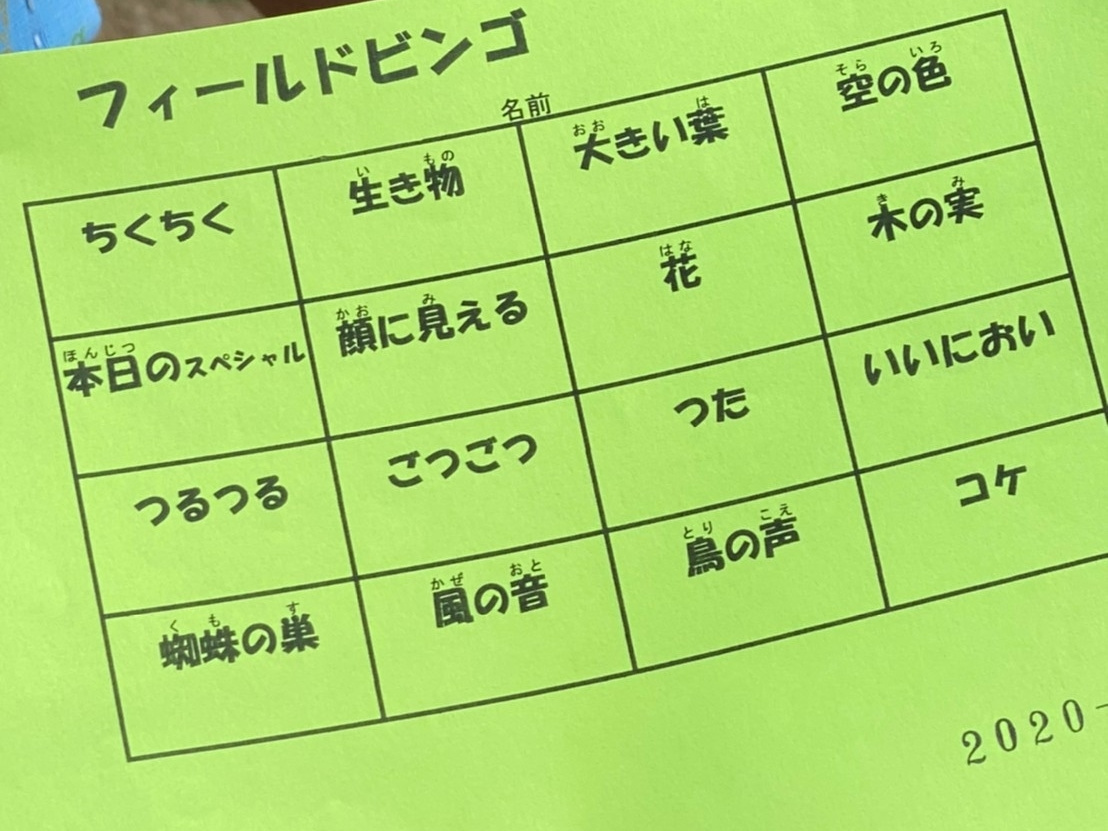 フィールドビンゴ
名前
ちくちく
生き物
大きい葉
空の色
本日のスペシャル
顔に見える
花
木の実
つるつる
ごつごつ
つた
いいにおい
蜘蛛の巣
風の音
鳥の声
コケ
2020-